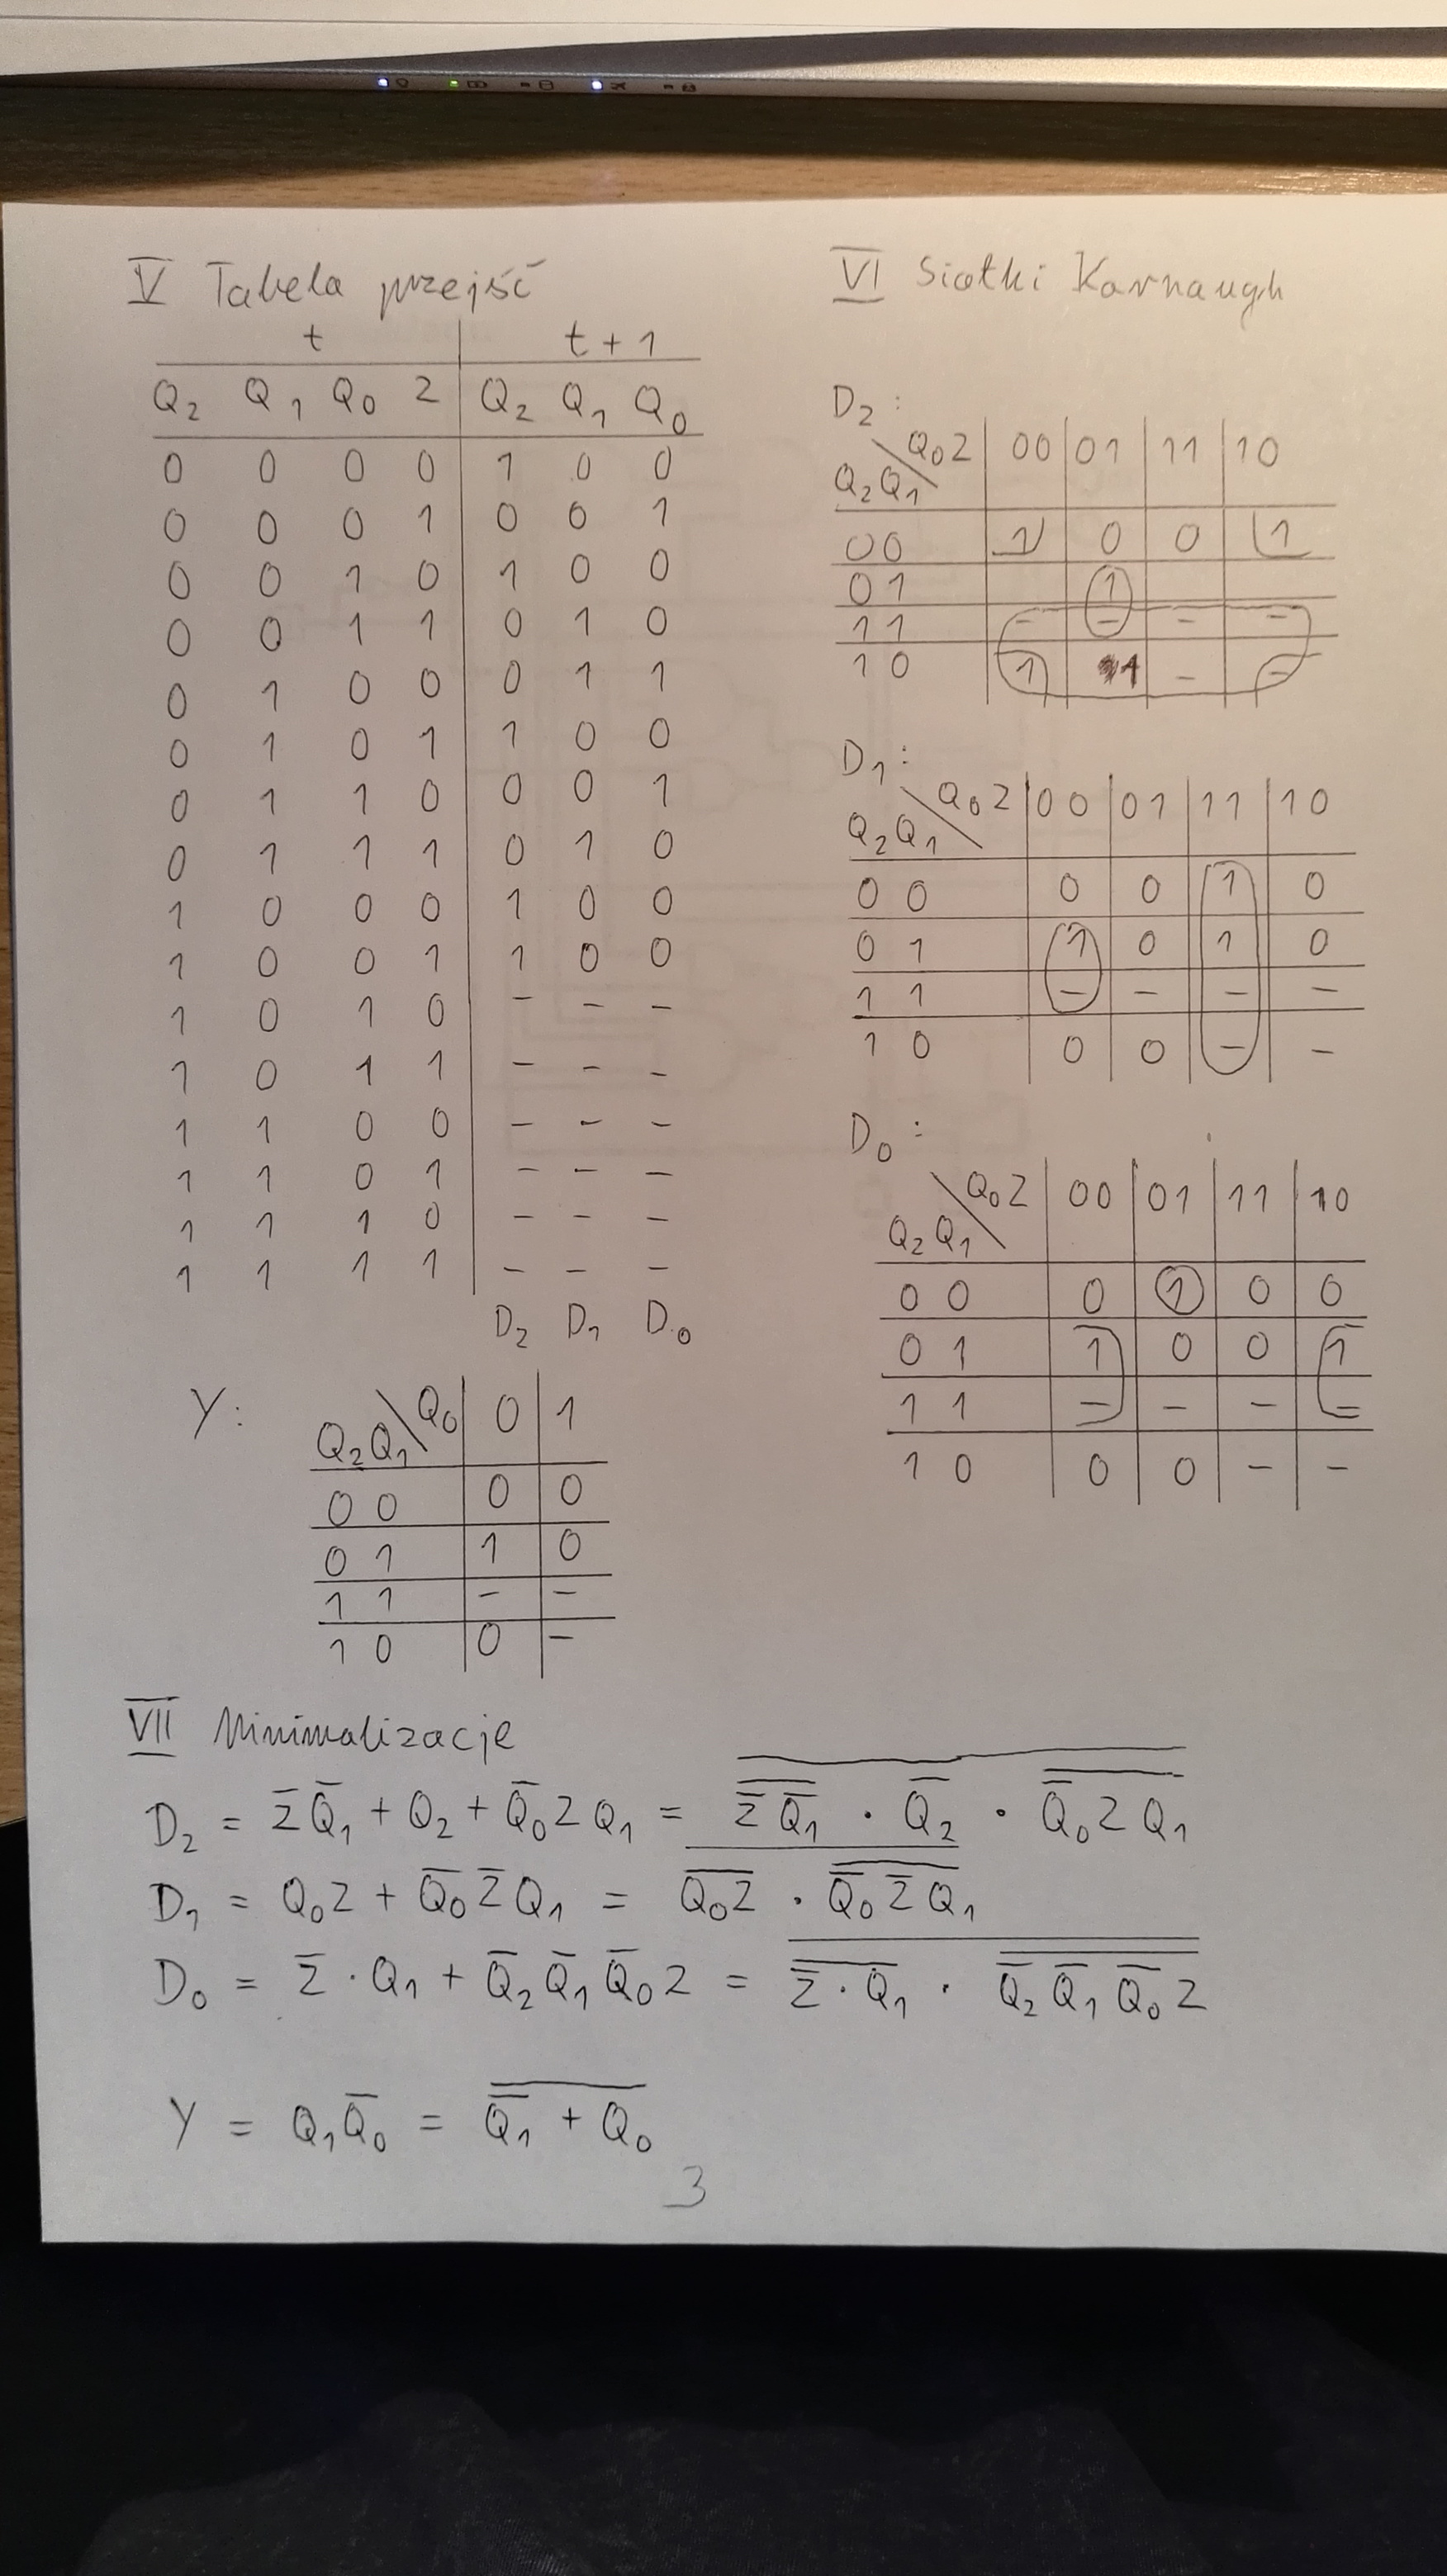 V Tabela przejść
t | t + 1
Q₂ Q₁ Q₀ Z | Q₂ Q₁ Q₀
0 0 0 0 | 1 0 0
0 0 0 1 | 0 0 1
0 0 1 0 | 1 0 0
0 0 1 1 | 0 1 0
0 1 0 0 | 0 1 1
0 1 0 1 | 1 0 0
0 1 1 0 | 0 0 1
0 1 1 1 | 0 1 0
1 0 0 0 | 1 0 0
1 0 0 1 | 1 0 0
1 0 1 0 | - - -
1 0 1 1 | - - -
1 1 0 0 | - - -
1 1 0 1 | - - -
1 1 1 0 | - - -
1 1 1 1 | - - -
D₂ D₁ D₀
Y:
Q₂Q₁\Q₀ | 0 | 1
0 0 | 0 | 0
0 1 | 1 | 0
1 1 | - | -
1 0 | 0 | -
VI Siatki Karnaugh
D₂:
Q₂Q₁\Q₀Z | 00 | 01 | 11 | 10
00 | 1 | 0 | 0 | 1
01 | | 1 | |
11 | - | - | - | -
10 | 1 | 1 | - | -
D₁:
Q₂Q₁\Q₀Z | 00 | 01 | 11 | 10
0 0 | 0 | 0 | 1 | 0
0 1 | 1 | 0 | 1 | 0
1 1 | - | - | - | -
1 0 | 0 | 0 | - | -
D₀:
Q₂Q₁\Q₀Z | 00 | 01 | 11 | 10
0 0 | 0 | 1 | 0 | 0
0 1 | 1 | 0 | 0 | 1
1 1 | - | - | - | -
1 0 | 0 | 0 | - | -
VII Minimalizacje
D₂ = Z̄Q̄₁ + Q₂ + Q̄₀ZQ₁ = \overline{\overline{Z̄Q̄₁} · Q̄₂ · \overline{Q̄₀ZQ₁}}
D₁ = Q₀Z + Q̄₀Z̄Q₁ = \overline{\overline{Q₀Z} · \overline{Q̄₀Z̄Q₁}}
D₀ = Z̄ · Q₁ + Q̄₂Q̄₁Q̄₀Z = \overline{\overline{Z̄ · Q₁} · \overline{Q̄₂Q̄₁Q̄₀Z}}
Y = Q₁Q̄₀ = \overline{Q̄₁ + Q₀}
3